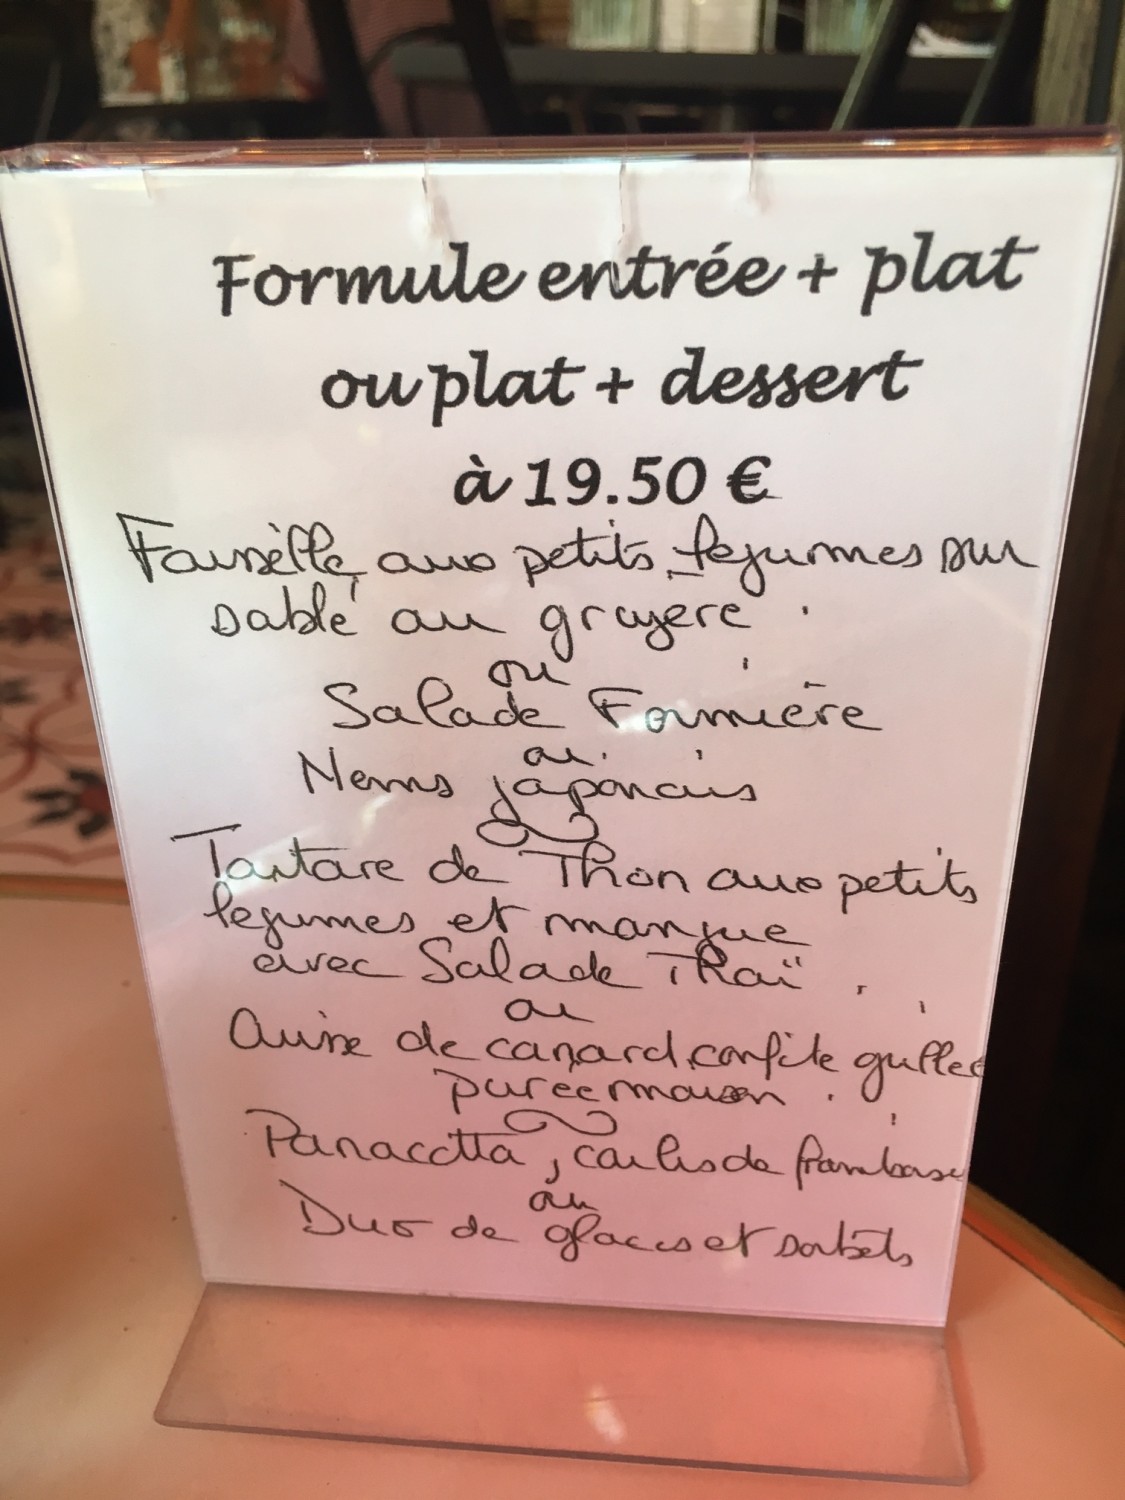 Formule entrée + plat
ou plat + dessert
à 19.50 €
Faisèlle aux petits legumes sur
sablé au gruyere
ou
Salade Fermière
ou
Nems japonais
Tartare de Thon aux petits
legumes et mangue
avec Salade Thaï
ou
Cuisse de canard confite grillee
puree maison
Panacotta, coulis de framboise
ou
Duo de glaces et sorbets